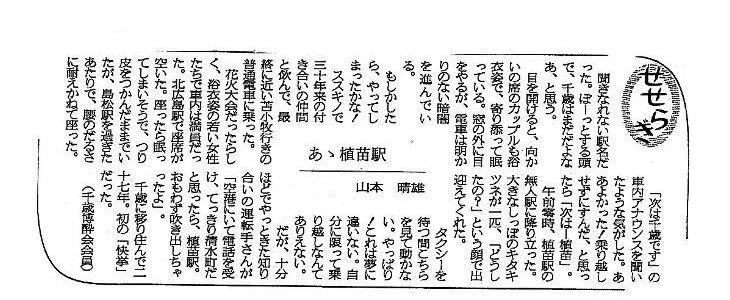 せせらぎ
あゝ植苗駅
山本 晴雄
聞きなれない駅名だ
った。ぼーっとする頭
で、千歳はまだだよな
あ、と思う。
目を開けると、向か
いの席のカップルも浴
衣姿で、寄り添って眠
っている。窓の外に目
をやるが、電車は明か
りのない暗闇
を進んでい
る。
もしかした
ら、やってし
まったかな!
ススキノで
三十年来の付
き合いの仲間
と飲んで、最
終に近い苫小牧行きの
普通電車に乗った。
花火大会だったらし
く、浴衣姿の若い女性
たちで車内は満員だっ
た。北広島駅で座席が
空いた。座ったら眠っ
てしまいそうで、つり
皮をつかんだままでい
たが、島松駅を過ぎた
あたりで、腰のだるさ
に耐えかねて座った。
「次は千歳です」の
車内アナウンスを聞い
たような気がした。あ
あよかった!乗り越し
せずにすんだ、と思っ
たら「次は―植苗」。
午前零時、植苗駅の
無人駅に降り立った。
大きなしっぽのキタキ
ツネが一匹、「どうし
たの?」という顔で出
迎えてくれた。
タクシーを
待つ間こちら
を見て動かな
い。やっぱり
!これは夢に
違いない。自
分に限って乗
り越しなんて
ありえない。
だが、十分
ほどでやっときた知り
合いの運転手さんが
「空港にいて電話を受
け、てっきり清水町だ
と思ったら、植苗駅。
おもわず吹き出しちゃ
ったよ」。
千歳に移り住んで二
十七年。初の「快挙」
だった。
(千歳博酔会会員)